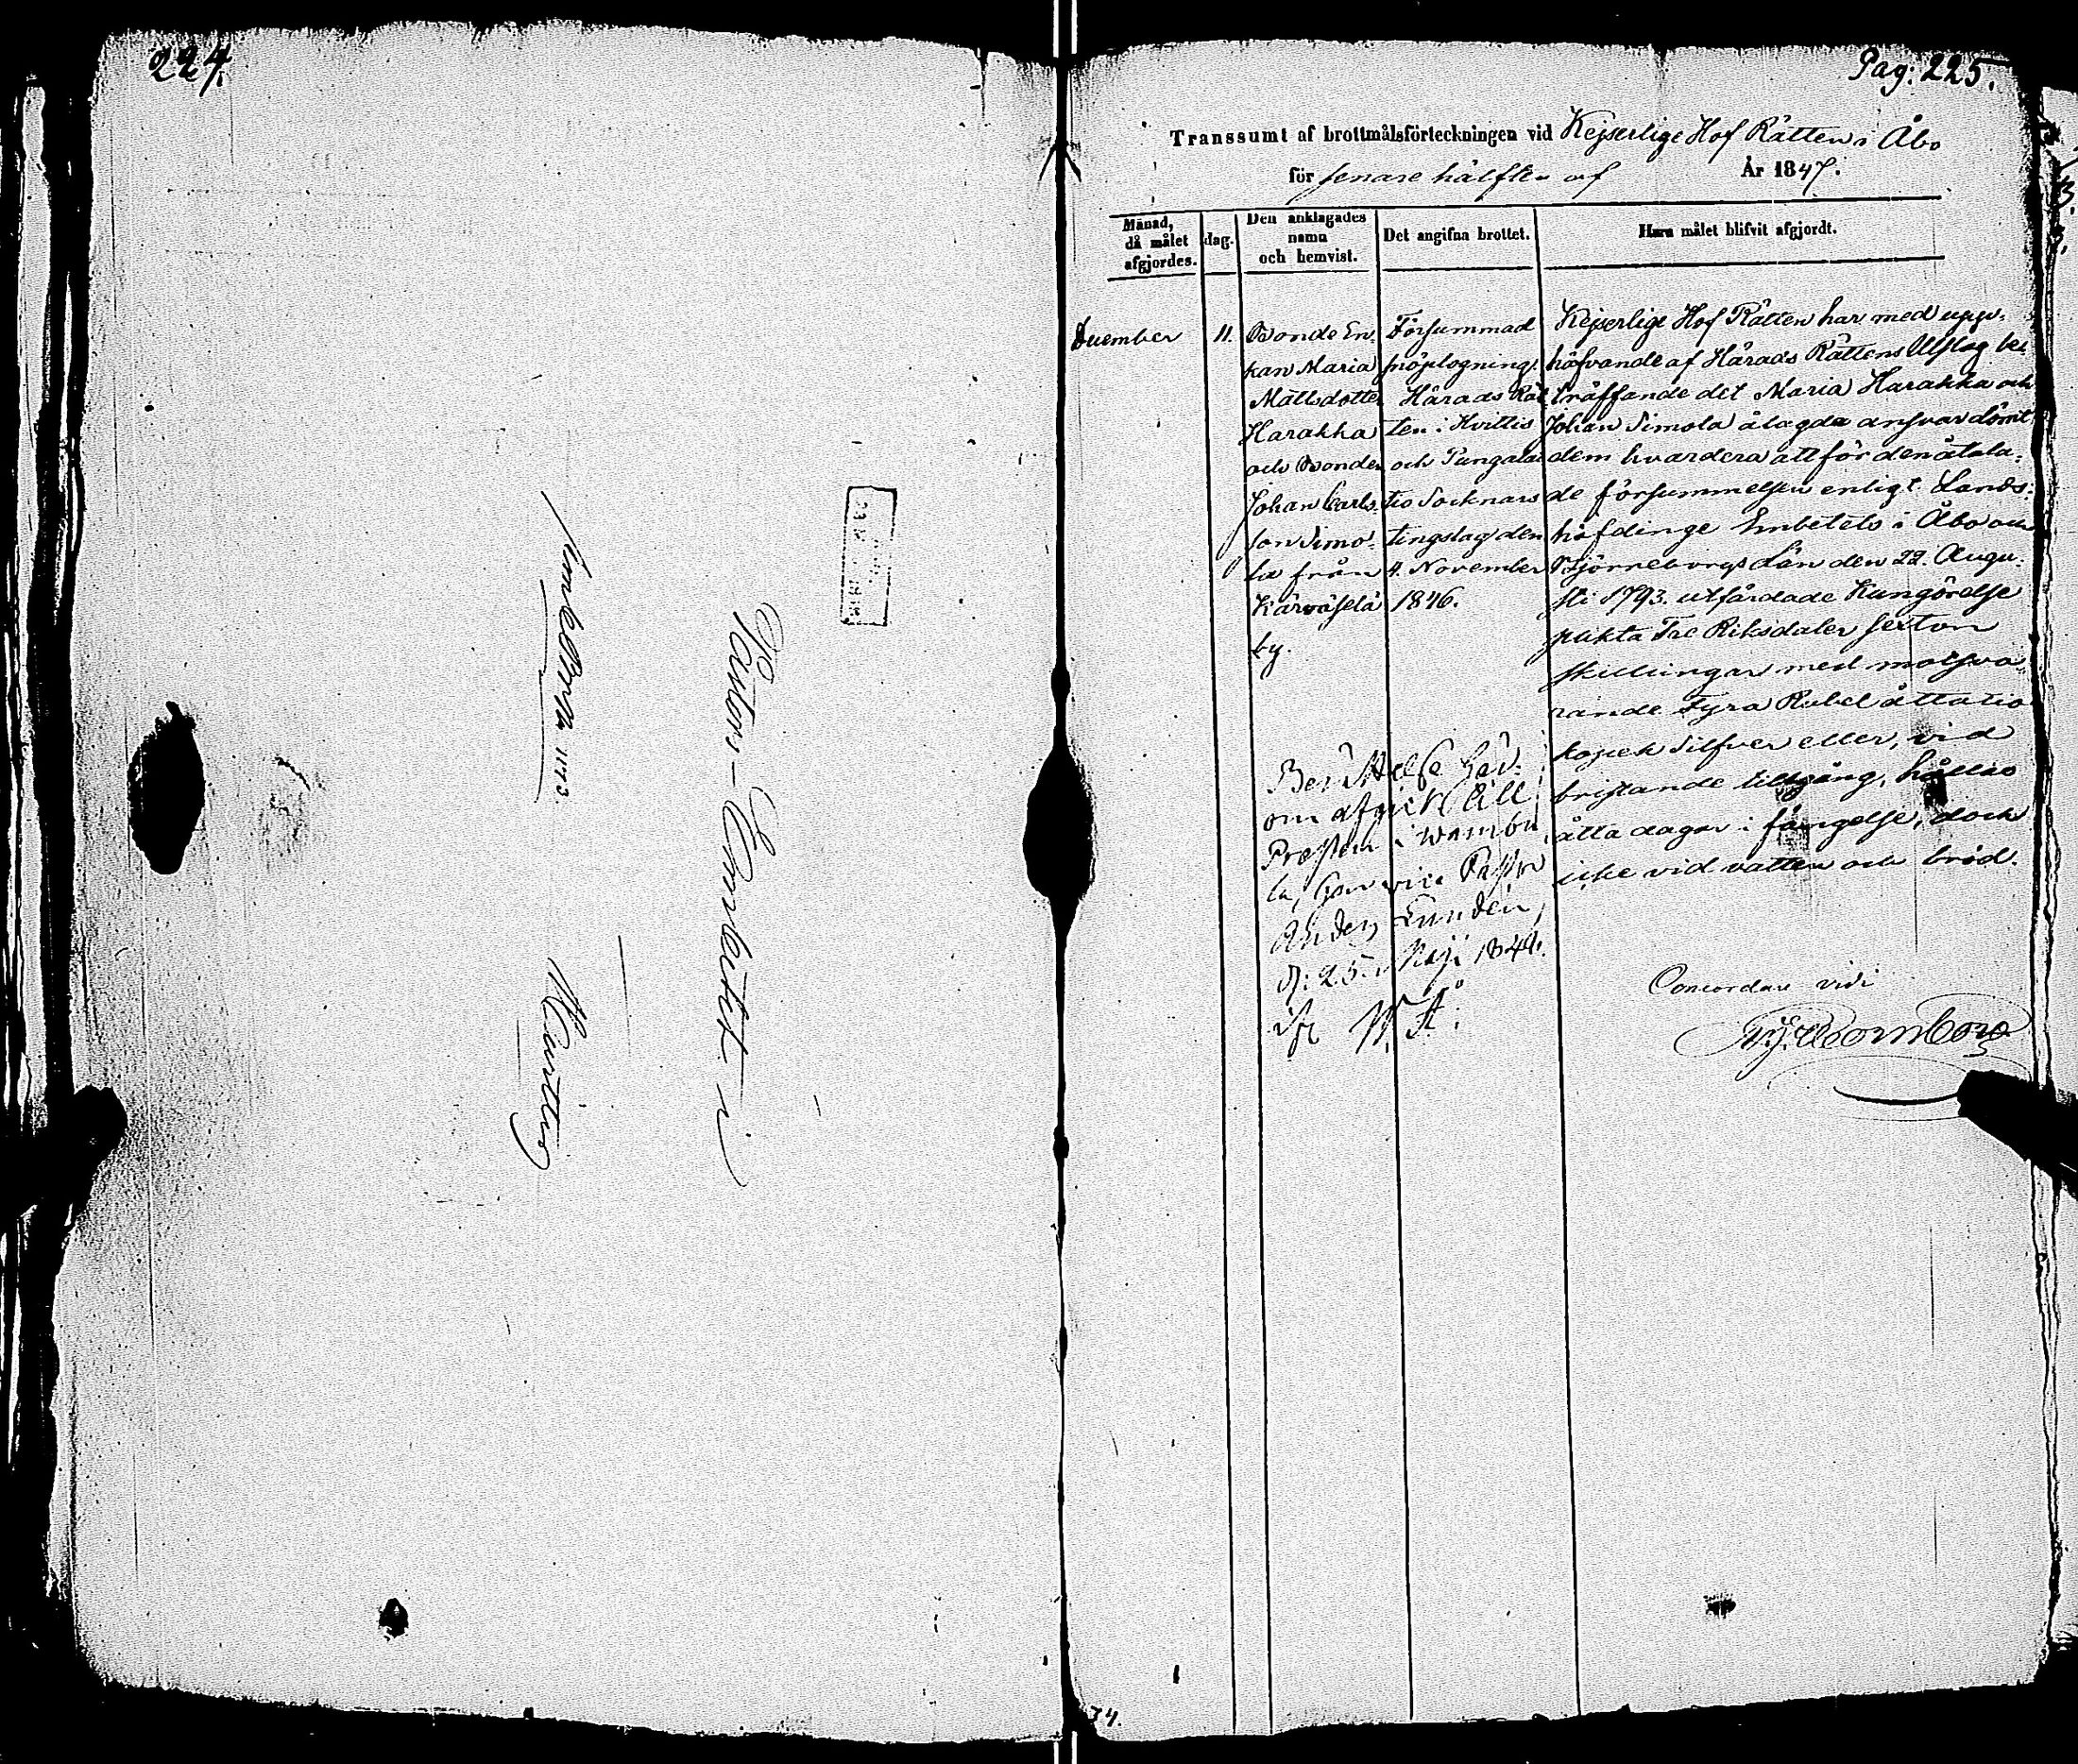 224.
Pastors-Embetet i
Hvittis
Pag: 225.
Transsumt af brottmålsförteckningen vid Kejserlige Hof Rätten i Åbo
för senare hälften af År 1847.
Månad, då målet afgjordes.
dag.
Den anklagades namn och hemvist.
Det angifna brottet.
Huru målet blifvit afgjordt.
December
11.
Bonde En-
kan Maria
Mattsdotter
Harakka
och Bonden
Johan Carls-
son Simo-
la från
Kärväselä
by.
Försummad
snöplogning.
Härads Rät
ten i Hvittis
och Pungalai
tio Socknars
tingslag den
4. November
1846.
Kejserlige Hof Rätten har med upp-
häfvande af Härads Rättens Utslag be-
träffande det Maria Harakka och
Johan Simola ålagda ansvar dömt
dem hvardera att för den åtala-
de försummelsen enligt Lands-
höfdinge Embetets i Åbo och
Björneborgs Län den 22. Augu-
sti 1793. utfärdade Kungörelse
plikta Tre Riksdaler sexton
skillingar med motsva-
rande Fyra Rubel åttatio
kopek Silfver eller, vid
bristande tillgång, hållas
åtta dagar i fängelse, dock
icke vid vatten och bröd.
Berättelse här-
om afgick till
Presten i Wambu
la, Herr vice Pastor
Anders Lundén
d: 25. Maji 1848.
W. Å.
Concordare vidi
34.